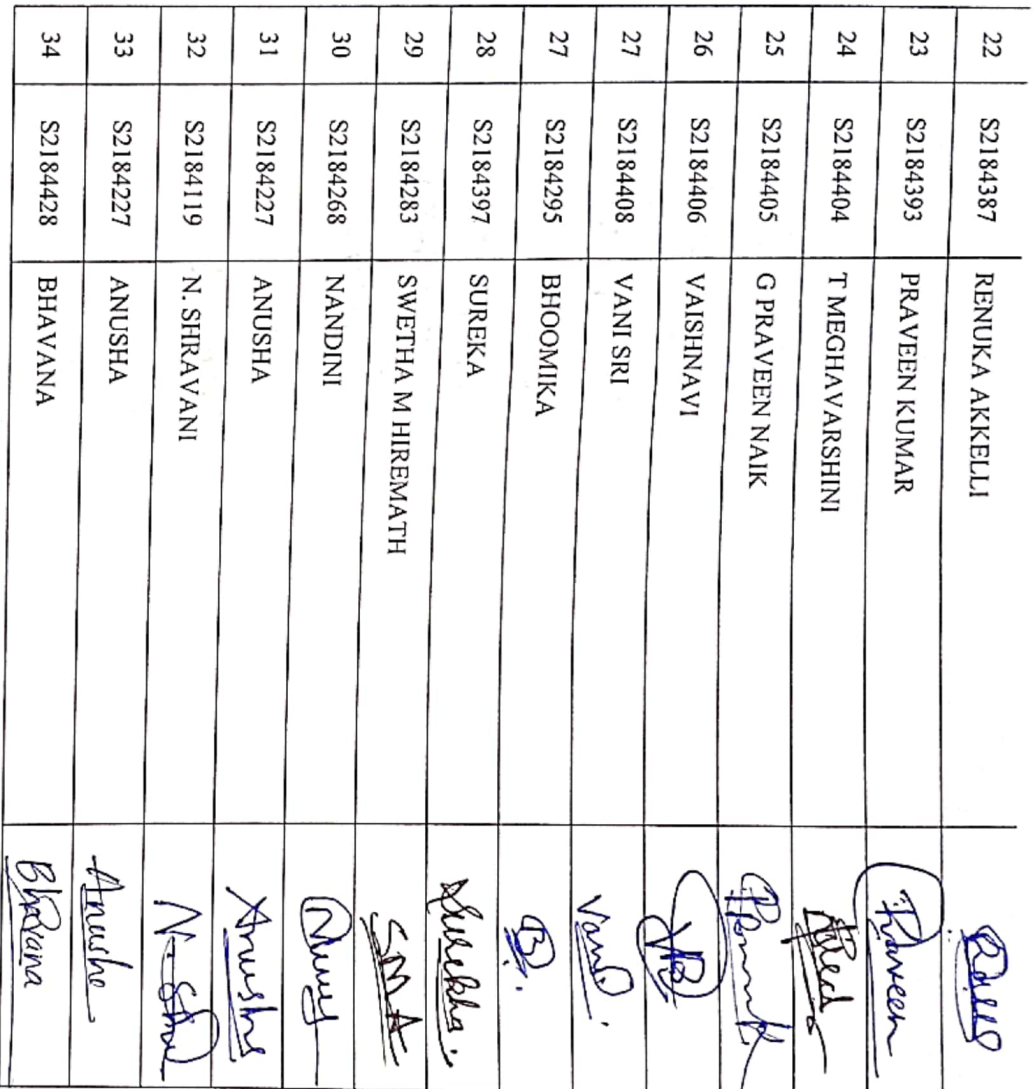 22 S2184387 RENUKA AKKELLI
23 S2184393 PRAVEEN KUMAR Praveen
24 S2184404 T MEGHAVARSHINI
25 S2184405 G PRAVEEN NAIK
26 S2184406 VAISHNAVI
27 S2184408 VANI SRI
27 S2184295 BHOOMIKA B.
28 S2184397 SUREKA
29 S2184283 SWETHA M HIREMATH
30 S2184268 NANDINI
31 S2184227 ANUSHA Anusha
32 S2184119 N. SHRAVANI
33 S2184227 ANUSHA Anusha
34 S2184428 BHAVANA Bhavana